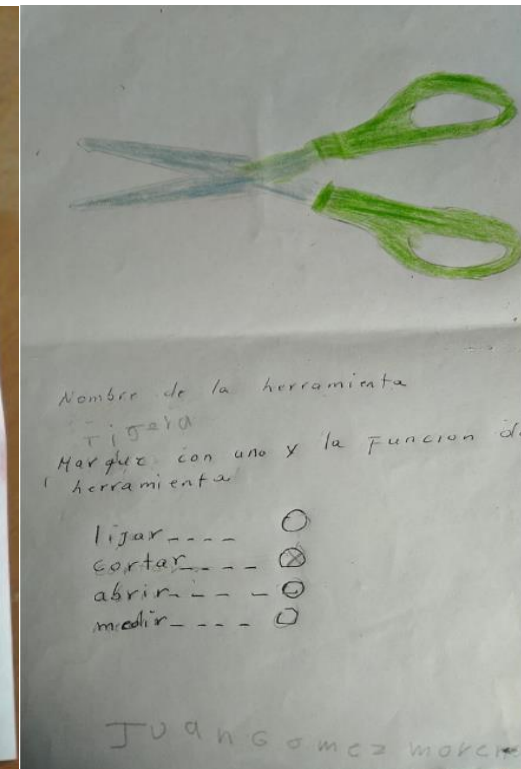 Nombre de la herramienta
Tigera
Marque con una x la Funcion d
herramienta
lijar----
cortar----
abrir-----
medir----
Juan Gomez moren